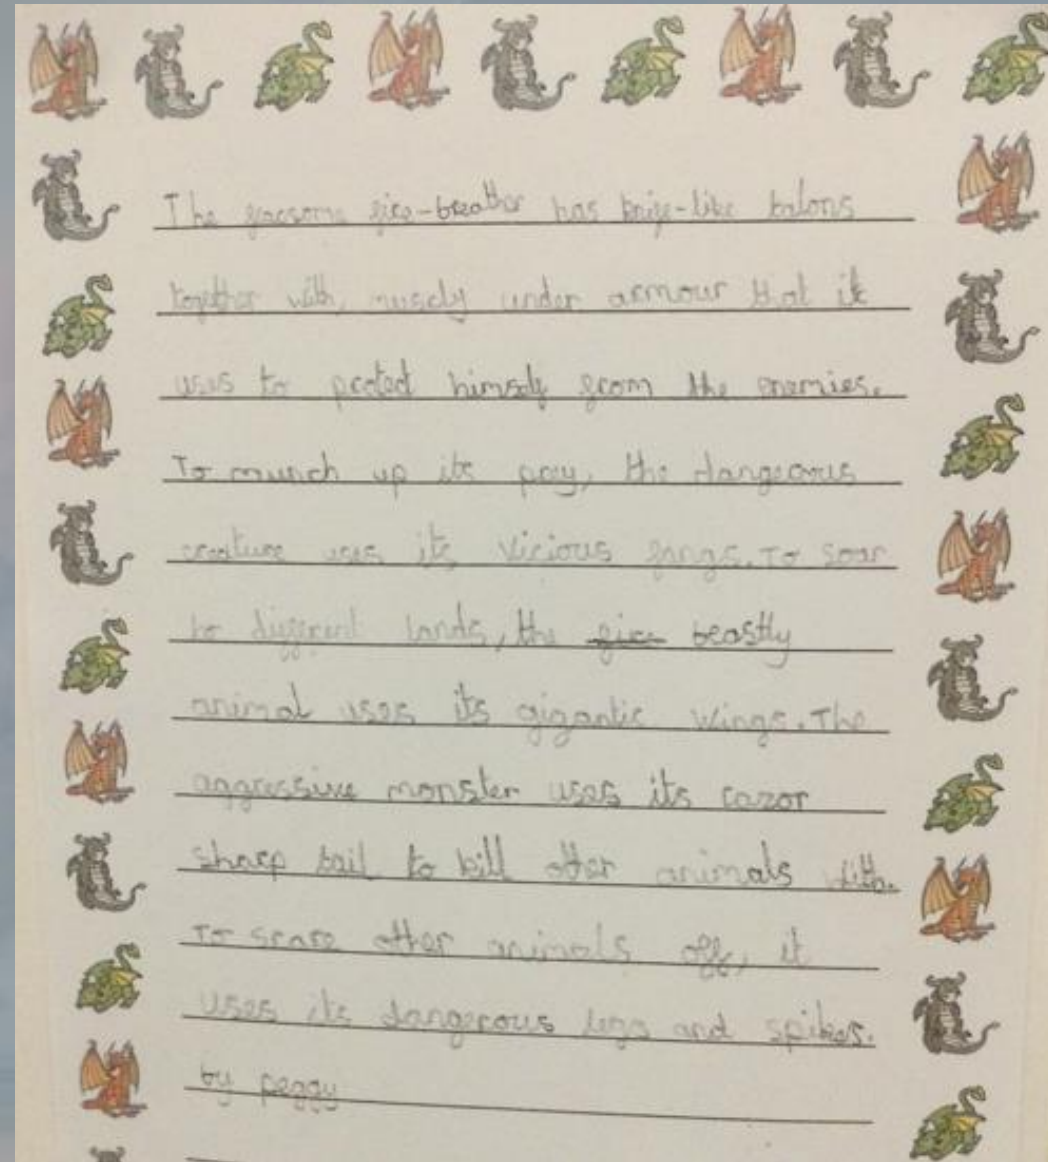 The fearsome fire-breather has knife-like talons
together with, muscly under armour that it
uses to protect himself from the enemies.
To munch up its pray, the dangeorus
creature uses its vicious fangs. To soar
to different lands, the fire beastly
animal uses its gigantic wings. The
aggressive monster uses its razor
sharp tail to kill other animals with.
To scare other animals off, it
uses its dangerous legs and spikes.
by peggy